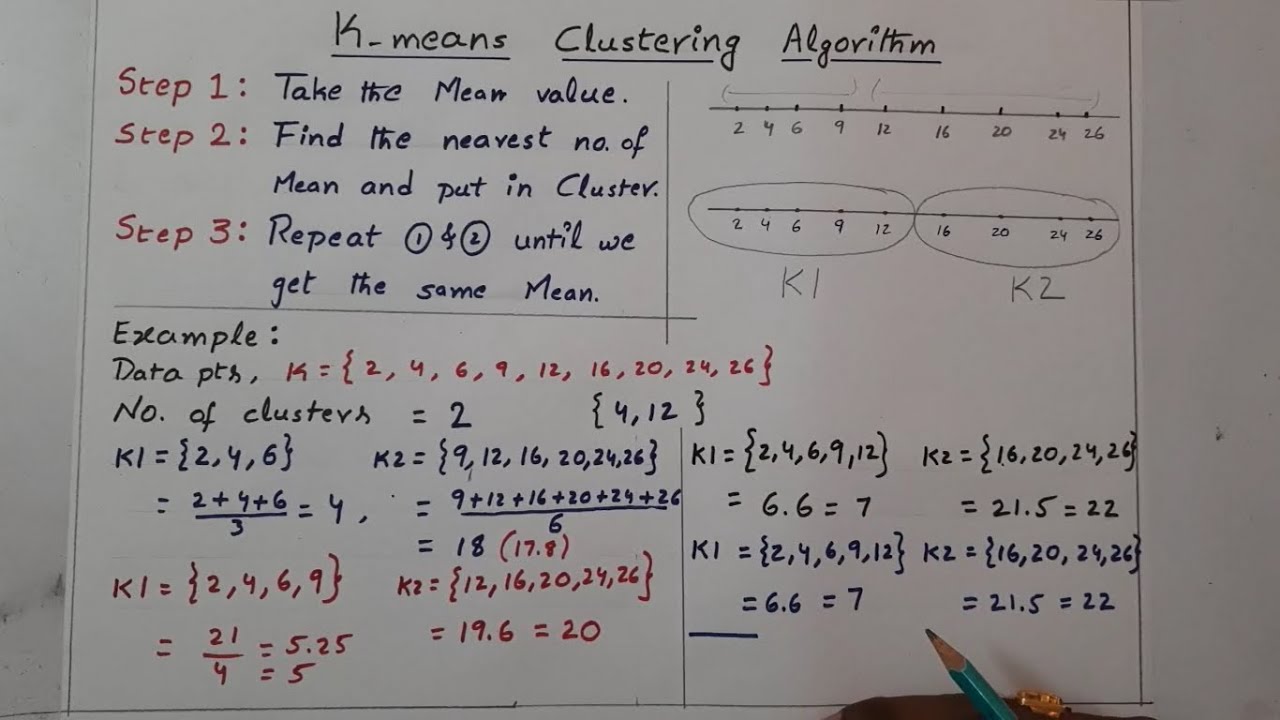 K-means Clustering Algorithm
Step 1: Take the Mean value.
Step 2: Find the nearest no. of
Mean and put in Cluster.
Step 3: Repeat ① & ② until we
get the same Mean.
2 4 6 9 12 16 20 24 26
2 4 6 9 12 16 20 24 26
K1 K2
Example:
Data pts, K = {2, 4, 6, 9, 12, 16, 20, 24, 26}
No. of clusters = 2 {4, 12}
K1 = {2, 4, 6} K2 = {9, 12, 16, 20, 24, 26}
= 2+4+6/3 = 4, = 9+12+16+20+24+26/6
= 18 (17.8)
K1 = {2, 4, 6, 9} K2 = {12, 16, 20, 24, 26}
= 21/4 = 5.25 = 19.6 = 20
= 5
K1 = {2, 4, 6, 9, 12} K2 = {16, 20, 24, 26}
= 6.6 = 7 = 21.5 = 22
K1 = {2, 4, 6, 9, 12} K2 = {16, 20, 24, 26}
= 6.6 = 7 = 21.5 = 22